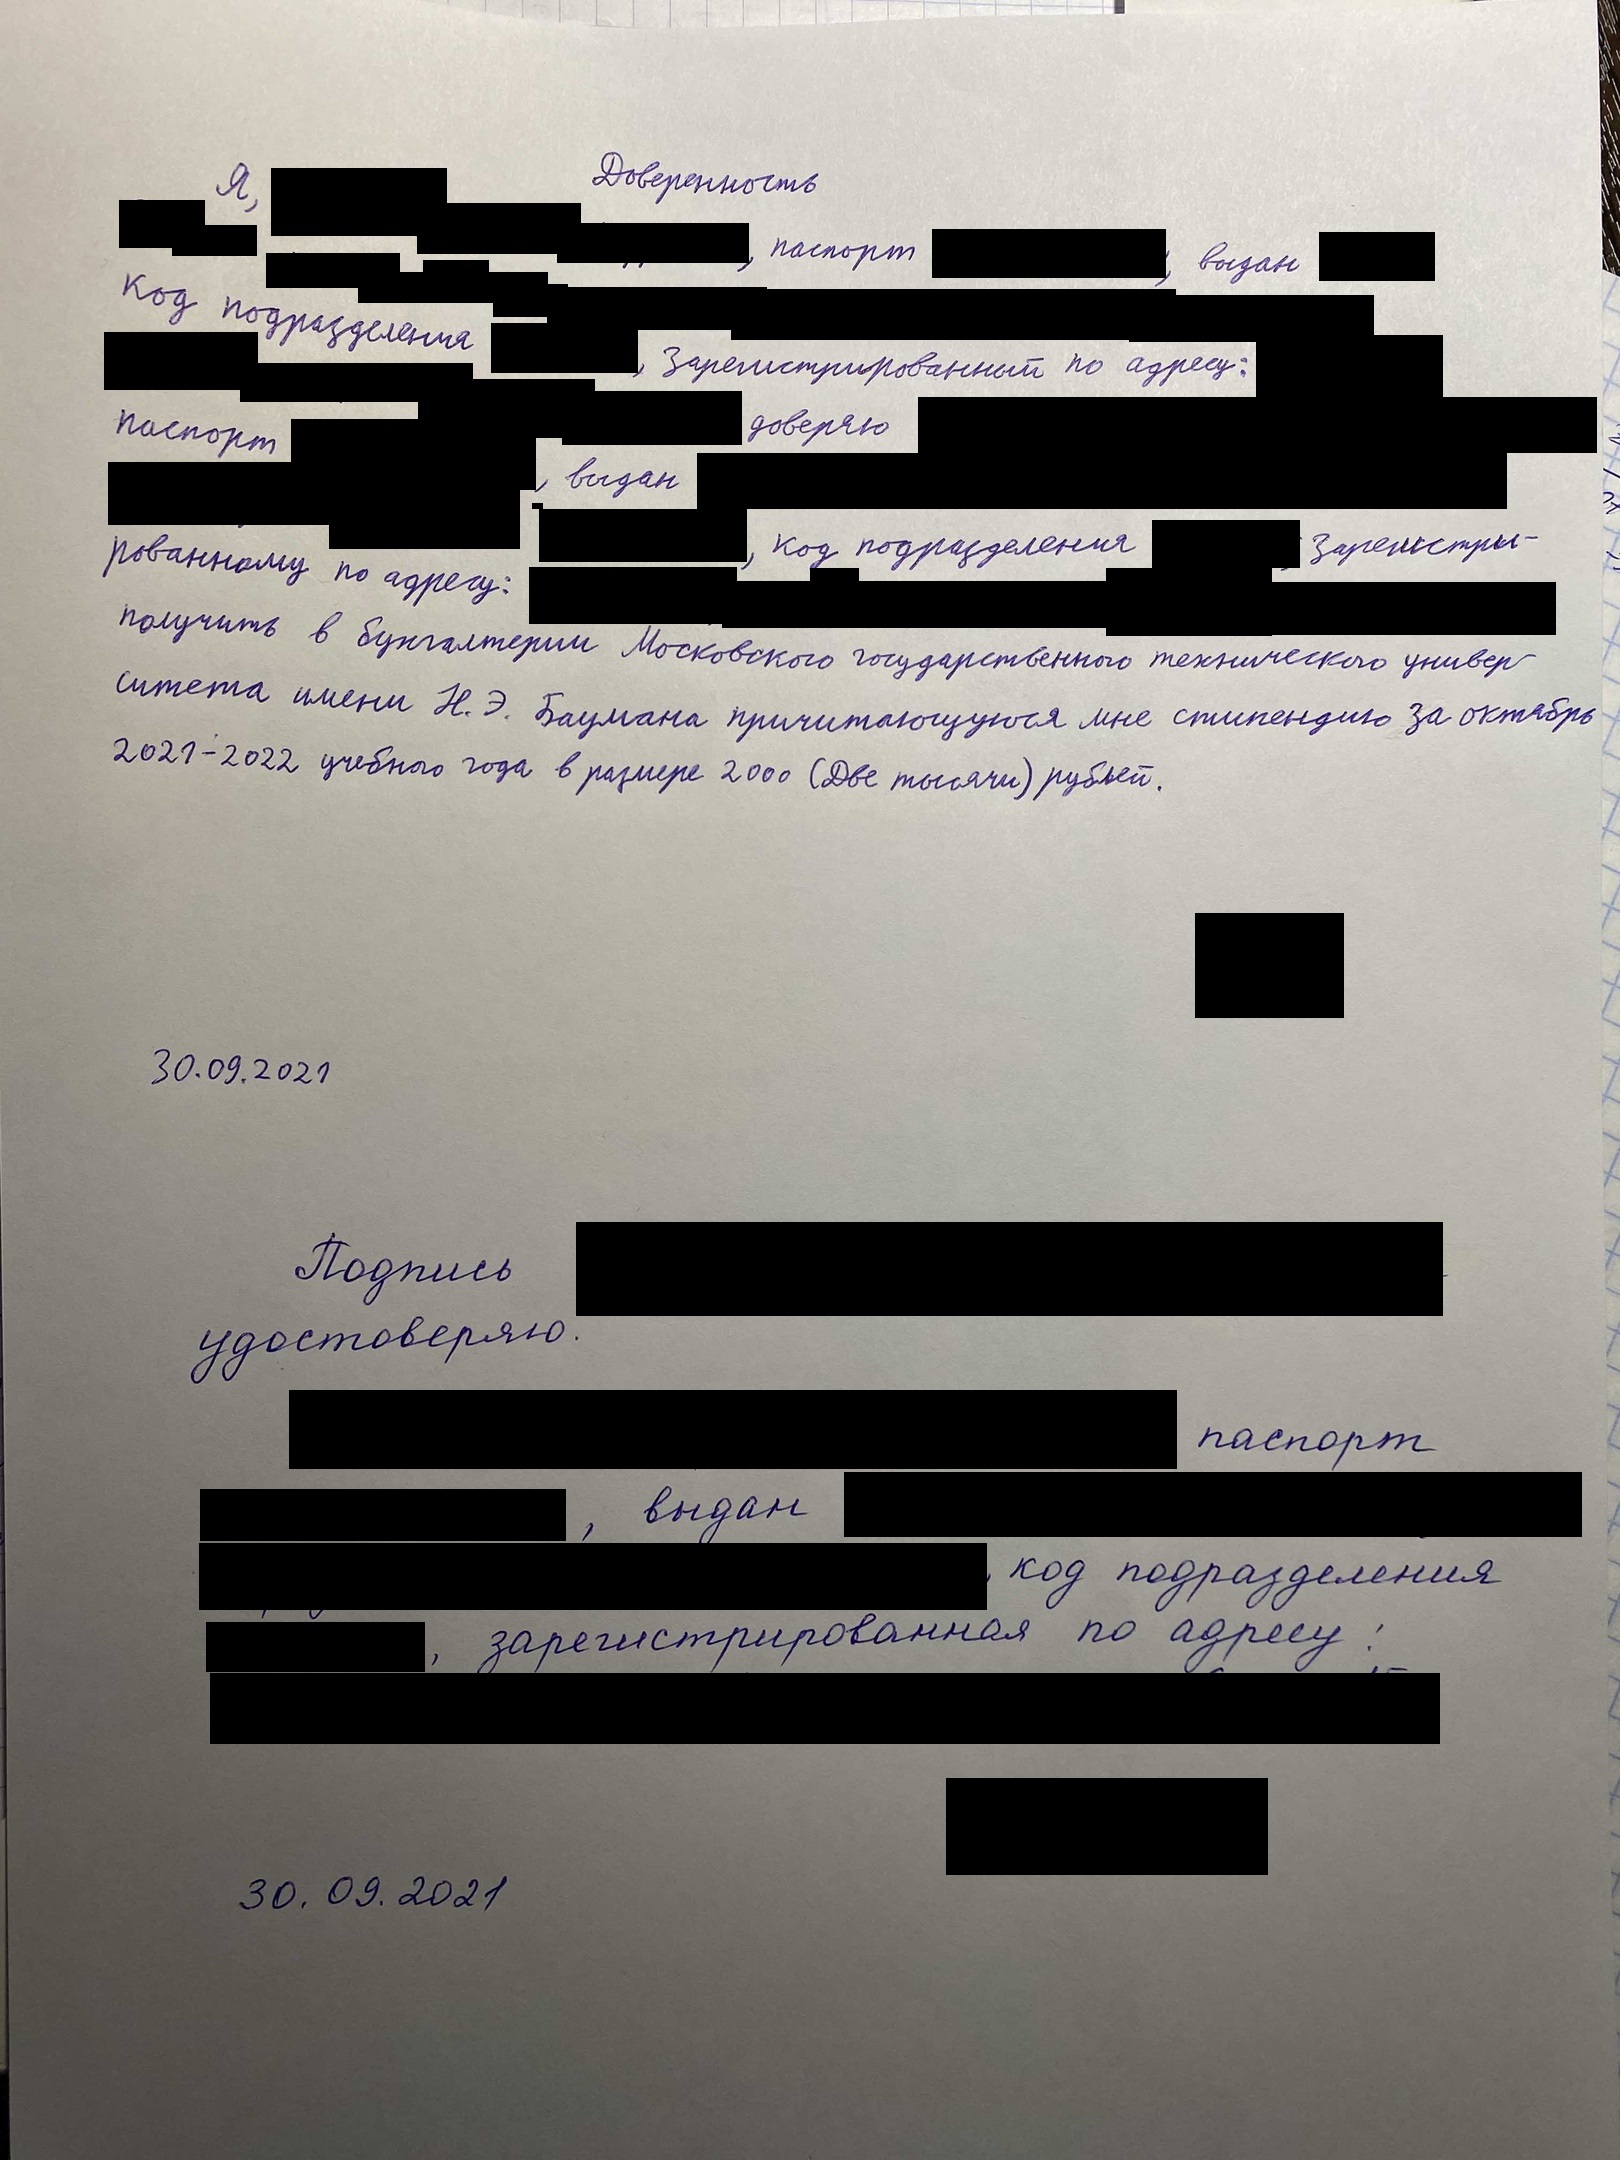 Доверенность
Я,
, паспорт , выдан
Код подразделения , Зарегистрированный по адресу:
доверяю
паспорт , выдан
, код подразделения Зарегистри-
рованному по адресу:
получить в бухгалтерии Московского государственного технического универ-
ситета имени Н.Э. Баумана причитающуюся мне стипендию за октябрь
2021-2022 учебного года в размере 2000 (Две тысячи) рублей.
30.09.2021
Подпись
удостоверяю.
паспорт
, выдан
, код подразделения
, зарегистрированная по адресу:
30.09.2021